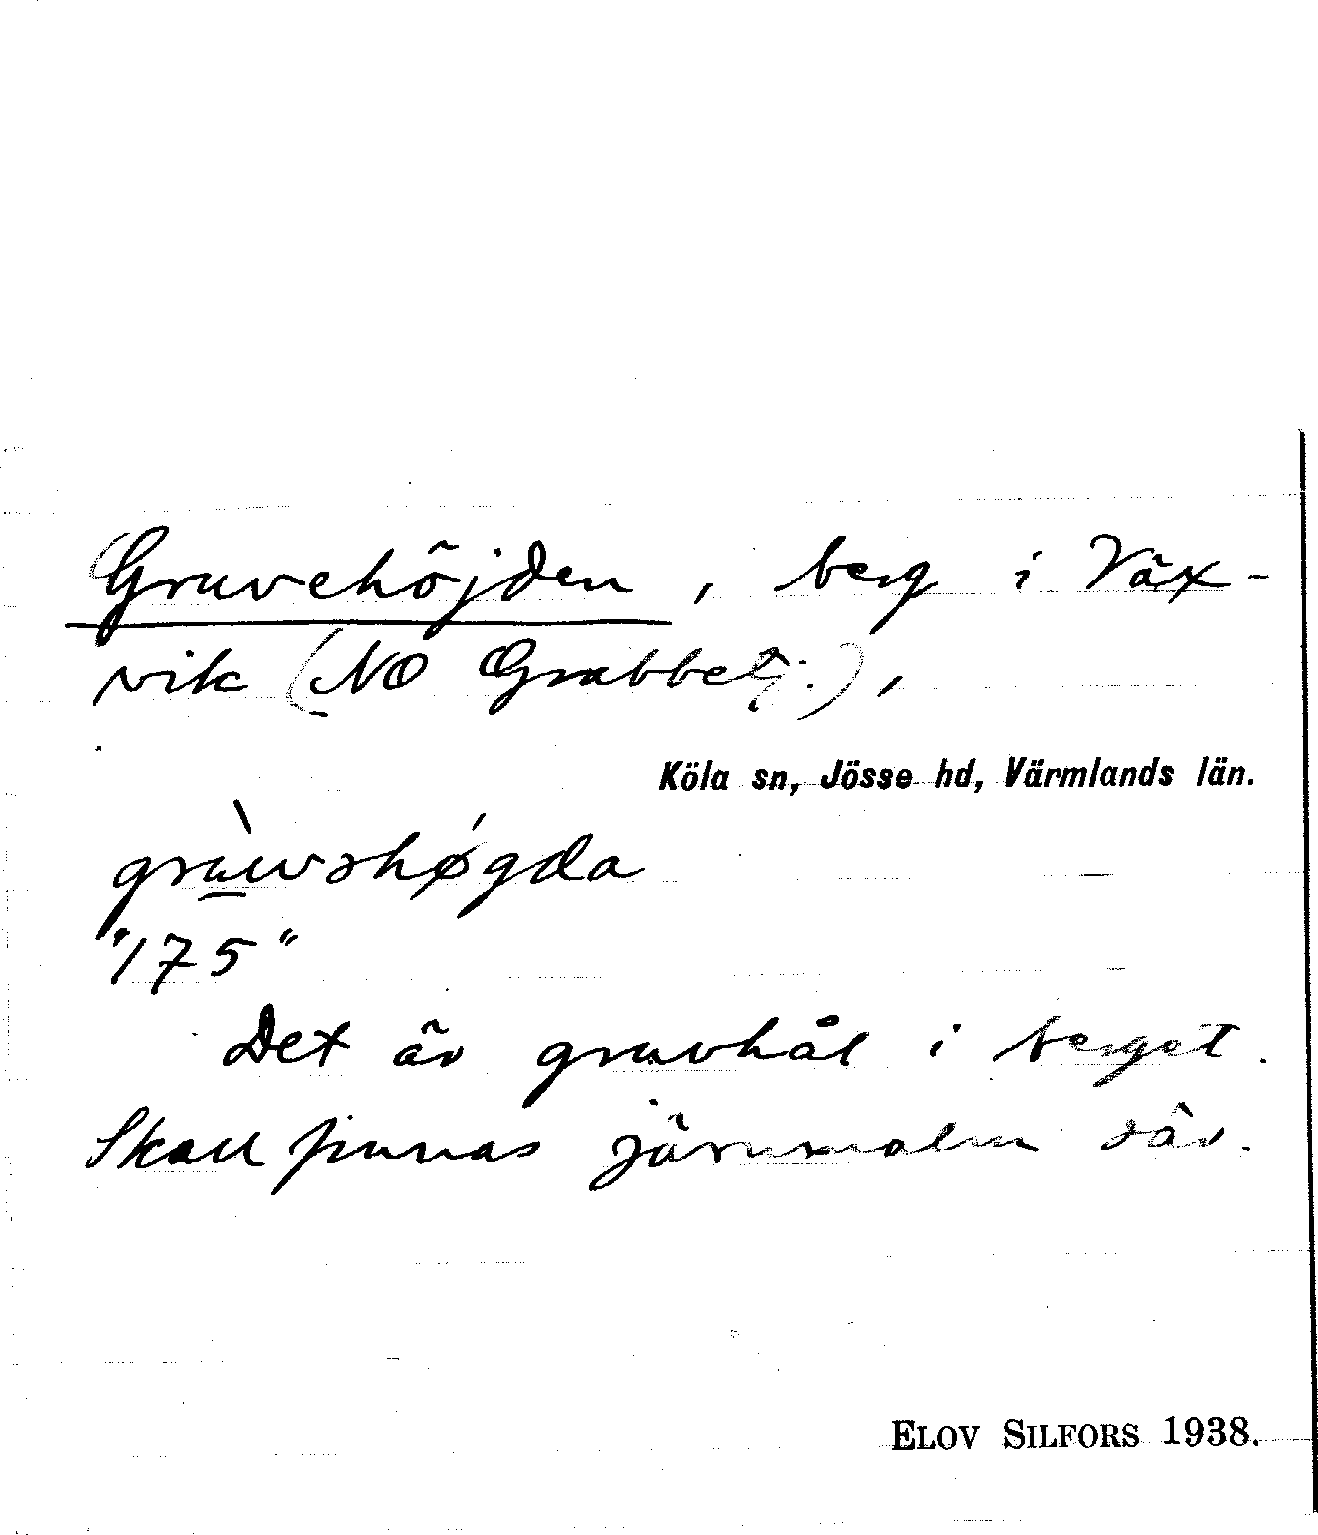 Gruvehöjden, berg i Växvik (NO Grabbetj:),
Köla sn, Jösse hd, Värmlands län.
grùwəhǿgda
"175"
Det är gruvhål i berget.
Skall finnas järnmalm där.
ELOV SILFORS 1938.